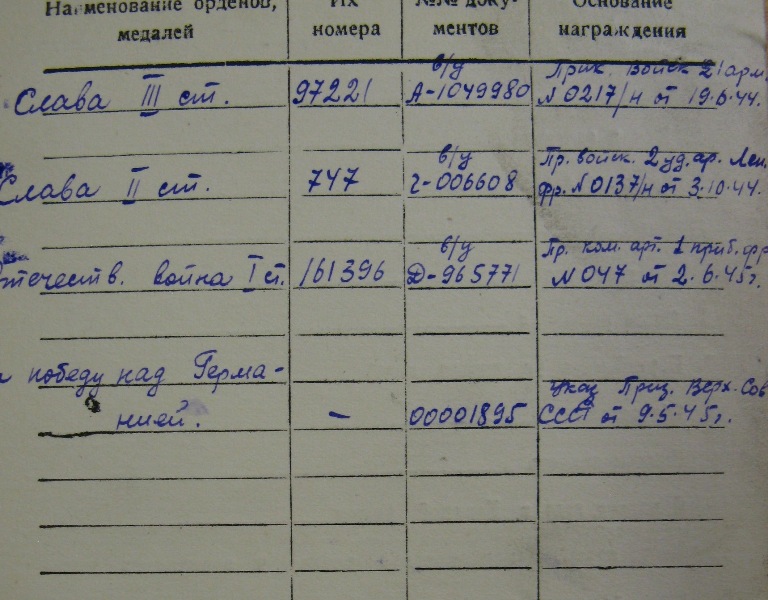 Наименование орденов, медалей
Их номера
№№ доку-
ментов
Основание
награждения
Слава III ст.
97221
в/у
А-1049980
Прик. Войск 21 арм.
N 0217/н от 19.6.44.
Слава II ст.
747
в/у
г-006608
Пр. войск. 2 уд. ар. Лен.
фр. N 0137/н от 3.10.44.
течеств. война I ст.
161396
в/у
Д-965771
Пр. ком. арт. 1 приб. фр
N 047 от 2.6.45г.
победу над Герма-
нией.
-
00001895
Указ През. Верх. Сов
СССР от 9.5.45г.